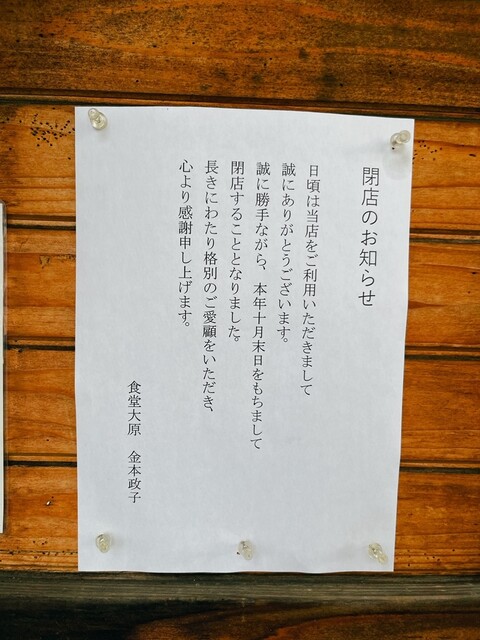 閉店のお知らせ
日頃は当店をご利用いただきまして
誠にありがとうございます。
誠に勝手ながら、本年十月末日をもちまして
閉店することとなりました。
長きにわたり格別のご愛顧をいただき、
心より感謝申し上げます。
食堂大原　金本政子